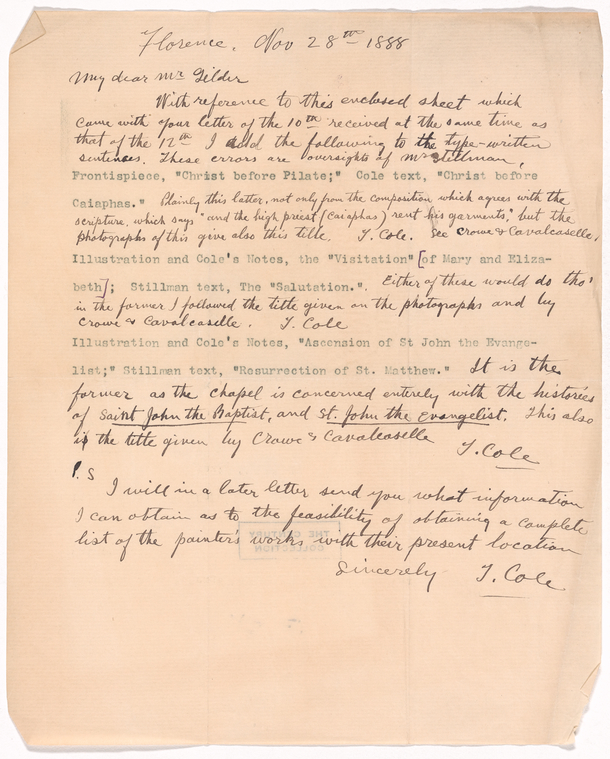 Florence, Nov 28th 1888
My dear Mr Gilder
With reference to this enclosed sheet which
came with your letter of the 10th received at the same time as
that of the 12th I add the following to the type-written
sentences. These errors are oversights of Mr Stillman,
Frontispiece, "Christ before Pilate;" Cole text, "Christ before
Caiaphas." Plainly this latter, not only from the composition which agrees with the
scripture, which says "and the high priest (Caiaphas) rent his garments," but the
photographs of this give also this title. T. Cole. See Crowe & Cavalcaselle,
Illustration and Cole's Notes, the "Visitation" [of Mary and Eliza-
beth]; Stillman text, The "Salutation.". Either of these would do tho'
in the former I followed the title given on the photographs and by
Crowe & Cavalcaselle. T. Cole
Illustration and Cole's Notes, "Ascension of St John the Evange-
list;" Stillman text, "Resurrection of St. Matthew." It is the
former as the chapel is concerned entirely with the histories
of Saint John the Baptist, and St. John the Evangelist. This also
is the title given by Crowe & Cavalcaselle
T. Cole
P.S
I will in a later letter send you what information
I can obtain as to the feasibility of obtaining a complete
list of the painter's works with their present location
Sincerely T. Cole
THE CENTURY
COLLECTION